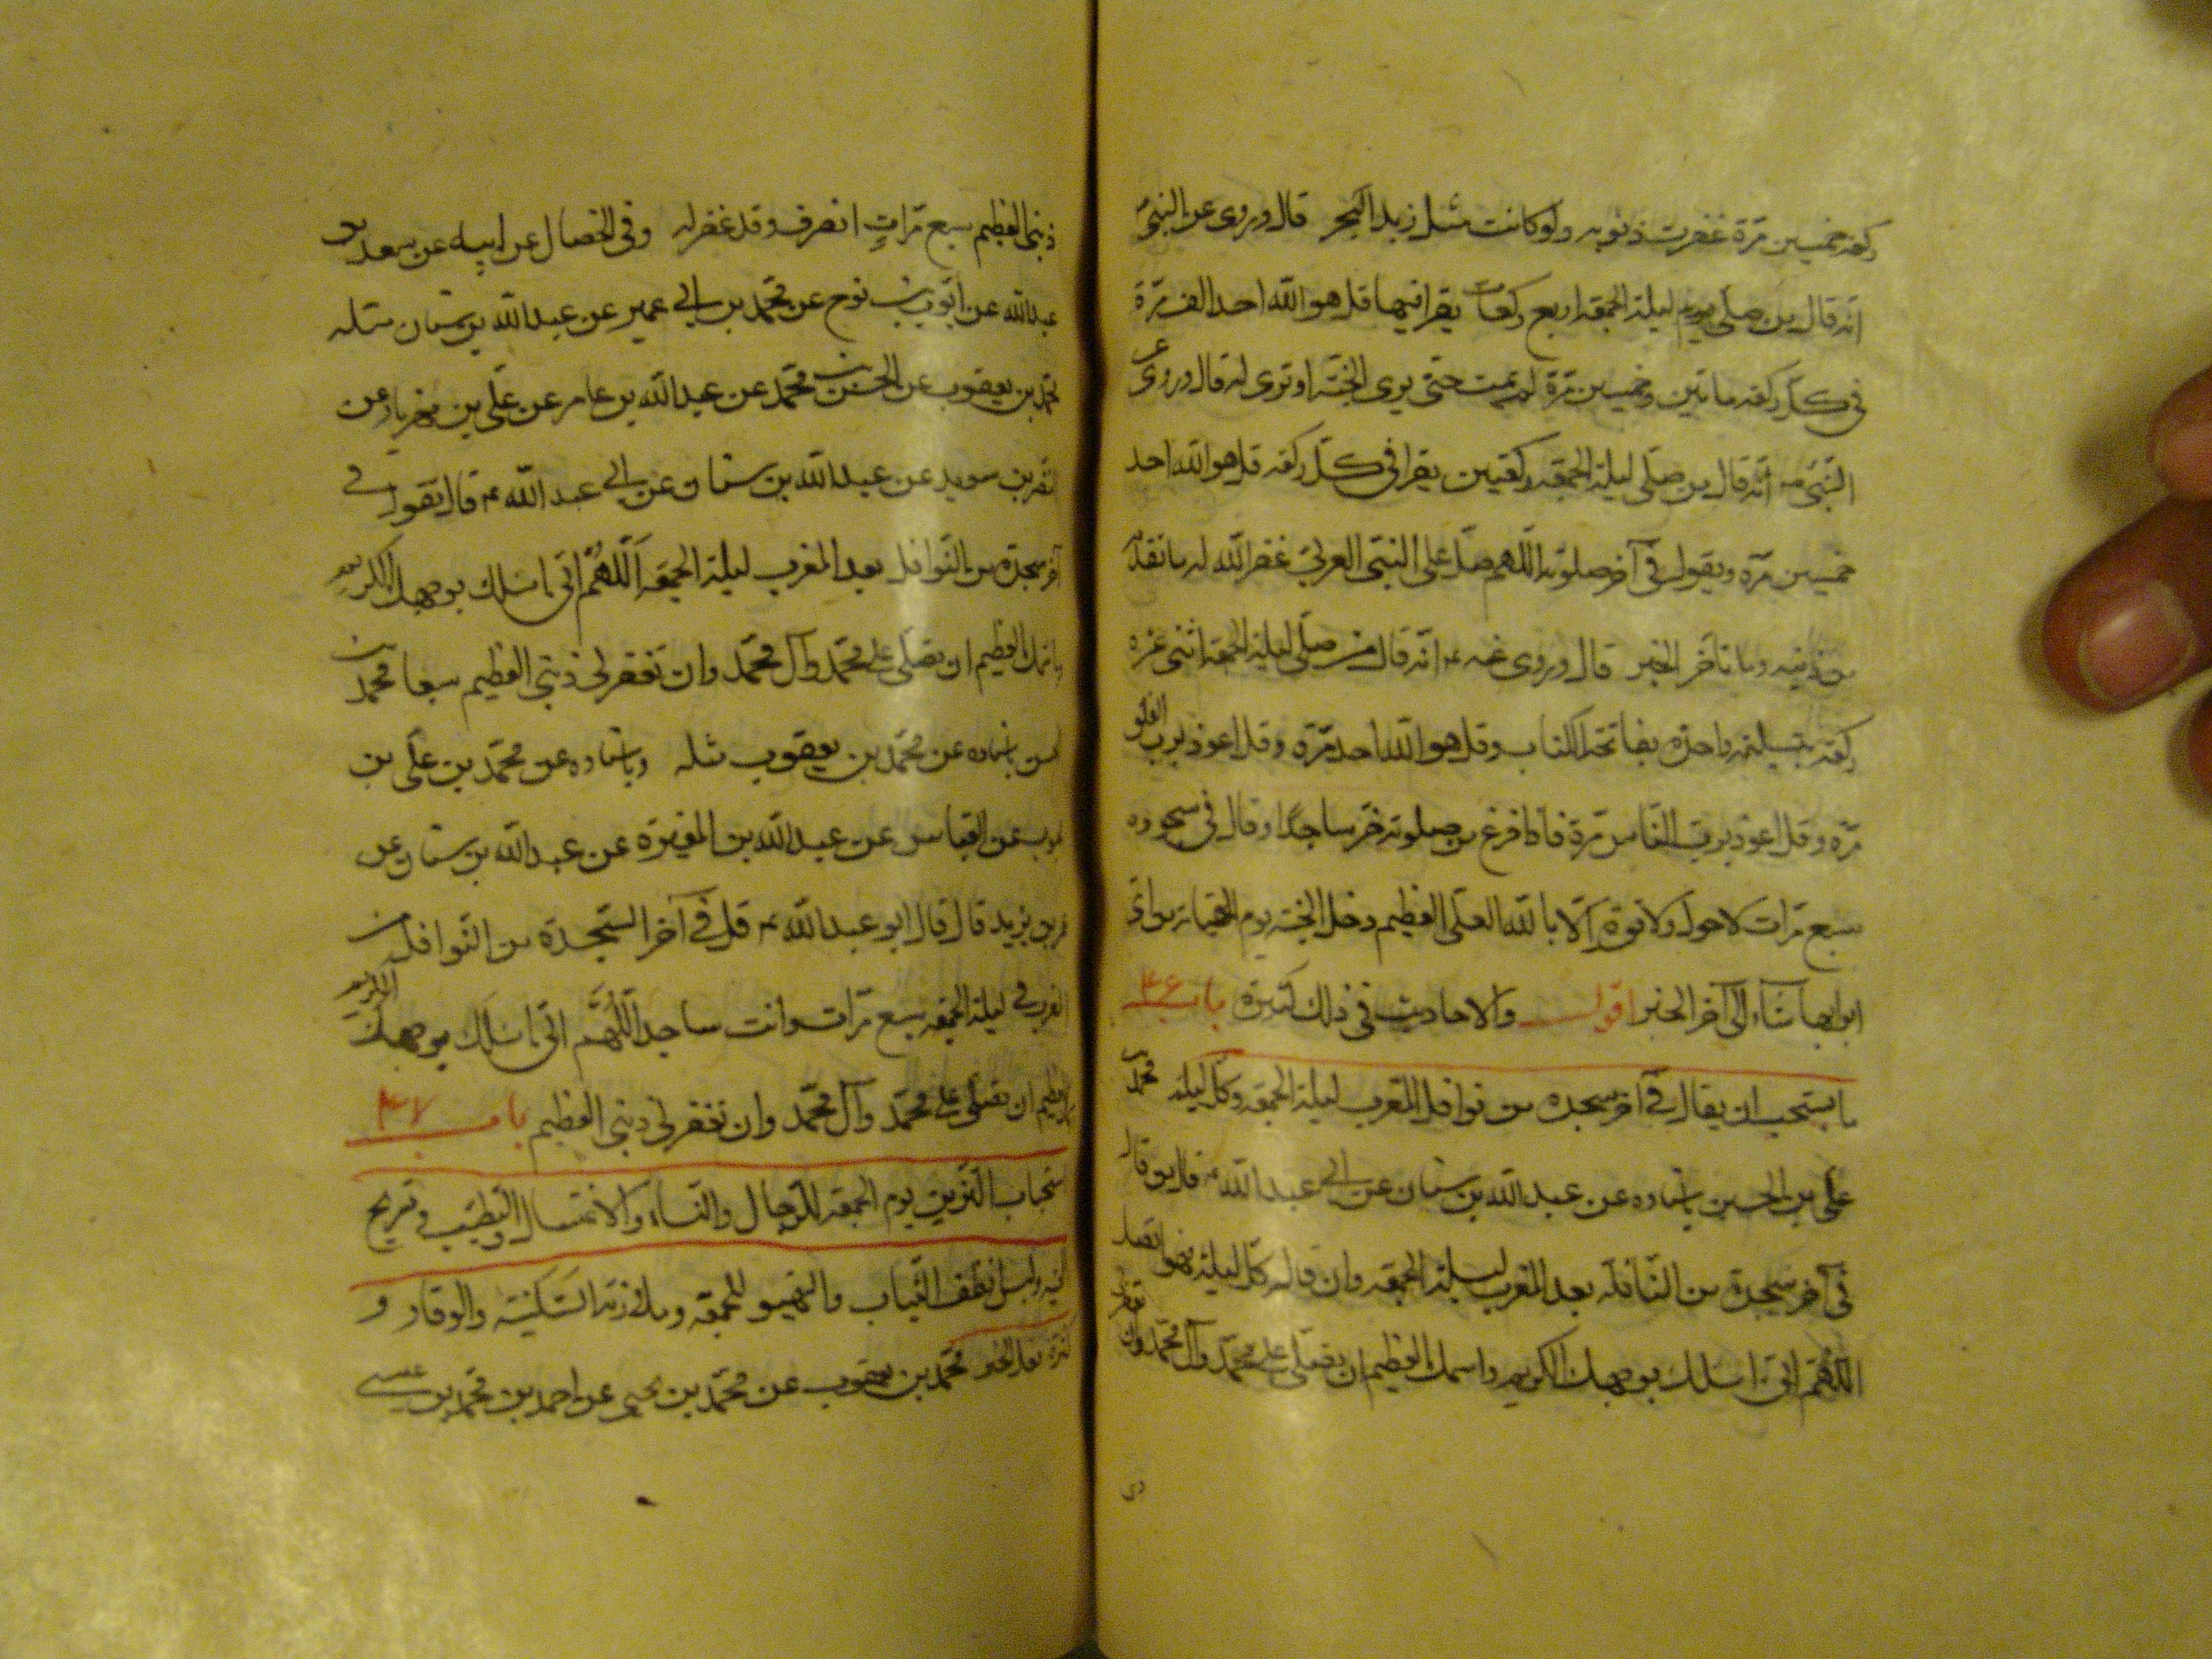 ركعة خمسين مرّة غفرت ذنوبه ولو كانت مثل زبد البحر قال وروى عن النبيّ
انّه قال من صلّى ليلة الجمعة اربع ركعات يقرا فيها قل هو الله احد الف مرّة
في كلّ ركعة ماتين وخمسين مرّة لم يمت حتى يرى الجنّة او ترى له قال وروى عن
النّبيّ ص انّه قال من صلّى ليلة الجمعة ركعتين يقرا في كلّ ركعة قل هو الله احد
خمسين مرّة ويقول في آخر صلوته اللّهم صلّ على النبّى العربيّ غفر الله له ما تقدّم
من ذنبه وما تأخّر الخبر قال وروى عنه انّه قال من صلّى ليلة الجمعة اثنى عشرة
ركعة بتسليمة واحدة بفاتحة الكتاب وقل هو الله احد مرّة وقل اعوذ بربّ الفلق
مرّة وقل اعوذ بربّ النّاس مرّة فاذا فرغ من صلوته خرّ ساجدًا وقال في سجوده
سبع مرّات لا حول ولا قوّة الّا بالله العلّى العظيم دخل الجنّة يوم القيامة من اىّ
ابوابها شاء الى آخر الخبر اقول والاحاديث في ذلك كثيرة باب ۴۶
ما يستحب ان يقال في آخر سجدة من نوافل المغرب ليلة الجمعة وكلّ ليلة محمّد بن
علّى بن الحسين باسناده عن عبد الله بن سنان عن ابي عبد الله ع قال من قال
في آخر سجدة من النّافلة بعد المغرب ليلة الجمعة وان قاله كلّ ليلة فهو افضل
اللّهمّ انّى اسئلك بوجهك الكريم واسمك العظيم ان تصلّى على محمّد وآل محمّد وان تغفر لي
ذنبى العظيم سبع مرّاتٍ انصرف وقد غفر له وفي الخصال عن ابيه عن سعد بن
عبد الله عن ايّوب بن نوح عن محمّد بن ابي عمير عن عبد الله بن سنان مثله
محمّد بن يعقوب عن الحسين بن محمّد عن عبد الله بن عامر عن علّى بن مهزيار عن
النّضر بن سويد عن عبد الله بن سنان عن ابي عبد الله ع قال تقول في
آخر سجدة من النّوافل بعد المغرب ليلة الجمعة اَللّهُمَّ انّى اسئلك بوجهك الكريم
واسمك العظيم ان تصلّى على محمّد وآل محمّد وان تغفر لي ذنبي العظيم سبعا محمّد بن
الحسن باسناده عن محمّد بن يعقوب مثله وباسناده عن محمّد بن علّى بن
محبوب عن العبّاس عن عبد الله بن المغيرة عن عبد الله بن سنان عن
عمر بن يزيد قال قال ابو عبد الله ع قل في آخر السّجدة من النّوافل من
المغرب في ليلة الجمعة سبع مرّات وانت ساجد اَللّهُمَّ انّى اسئلك بوجهك الكريم
العظيم ان تصلّى على محمّد وآل محمّد وان تغفر لي ذنبى العظيم باب ۴۷
استحباب التّزين يوم الجمعة للرّجال والنّساء والاغتسال والتّطيّب و تسريح
اللحية ولبس انظف الثّياب والتهيؤ للجمعة وملازمة السّكينة والوقار و
كثرة فعل الخير محمّد بن يعقوب عن محمّد بن يحيى عن احمد بن محمّد بن عيسى